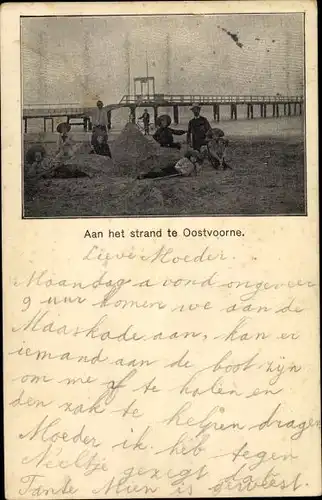 Aan het strand te Oostvoorne.
Lieve Moeder.
Maandag avond ongeveer
9 uur komen we aan de
Maaskade aan, kan er
iemand aan de boot zijn
om me af te halen en
den zak te helpen dragen
Moeder ik heb tegen
Neeltje gezegt dat
Tante Mien is geweest.